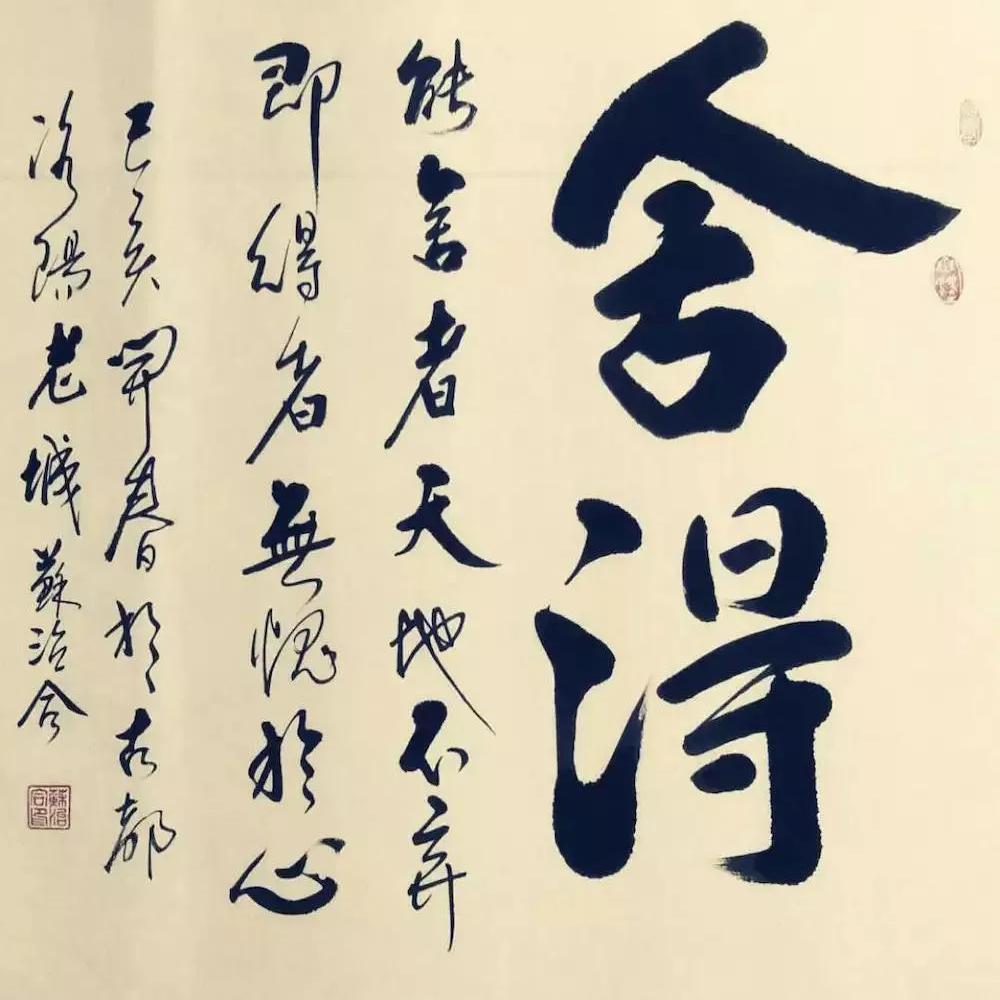 舍得
能舍者天地不弃
即得者無愧於心
己亥開春於古都
洛陽老城蘇治合
蘇治合印